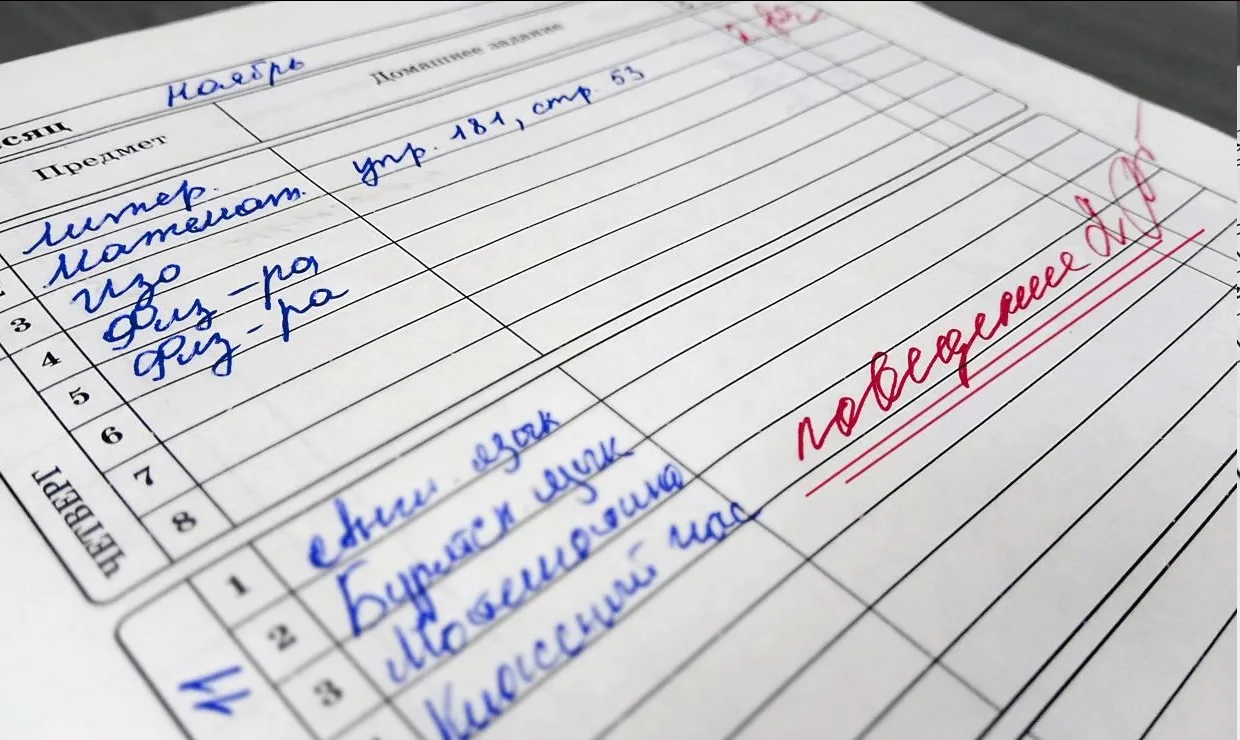 Ноябрь
Предмет Домашнее задание
литер.
математ. упр. 181, стр 53
3 изо
4 физ-ра
5 физ-ра
6
7
8
ЧЕТВЕРГ
поведение 2
1 Англ. язык
2 Бурятск язык
3 Математика
Классный час
11